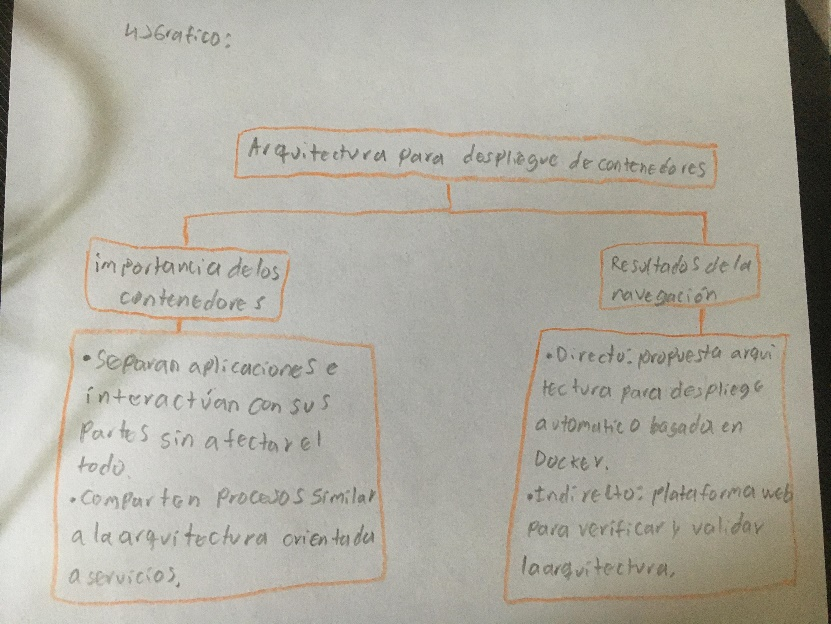 4) Grafico:
Arquitectura para despliegue de contenedores
importancia de los
contenedores
Resultados de la
navegación
• Separan aplicaciones e
interactúan con sus
partes sin afectar el
todo.
• Comparten procesos similar
a la arquitectura orientada
a servicios.
• Directo: propuesta arqui
tectura para despliege
automatico basada en
Docker.
• Indirecto: plataforma web
para verificar y validar
la arquitectura.